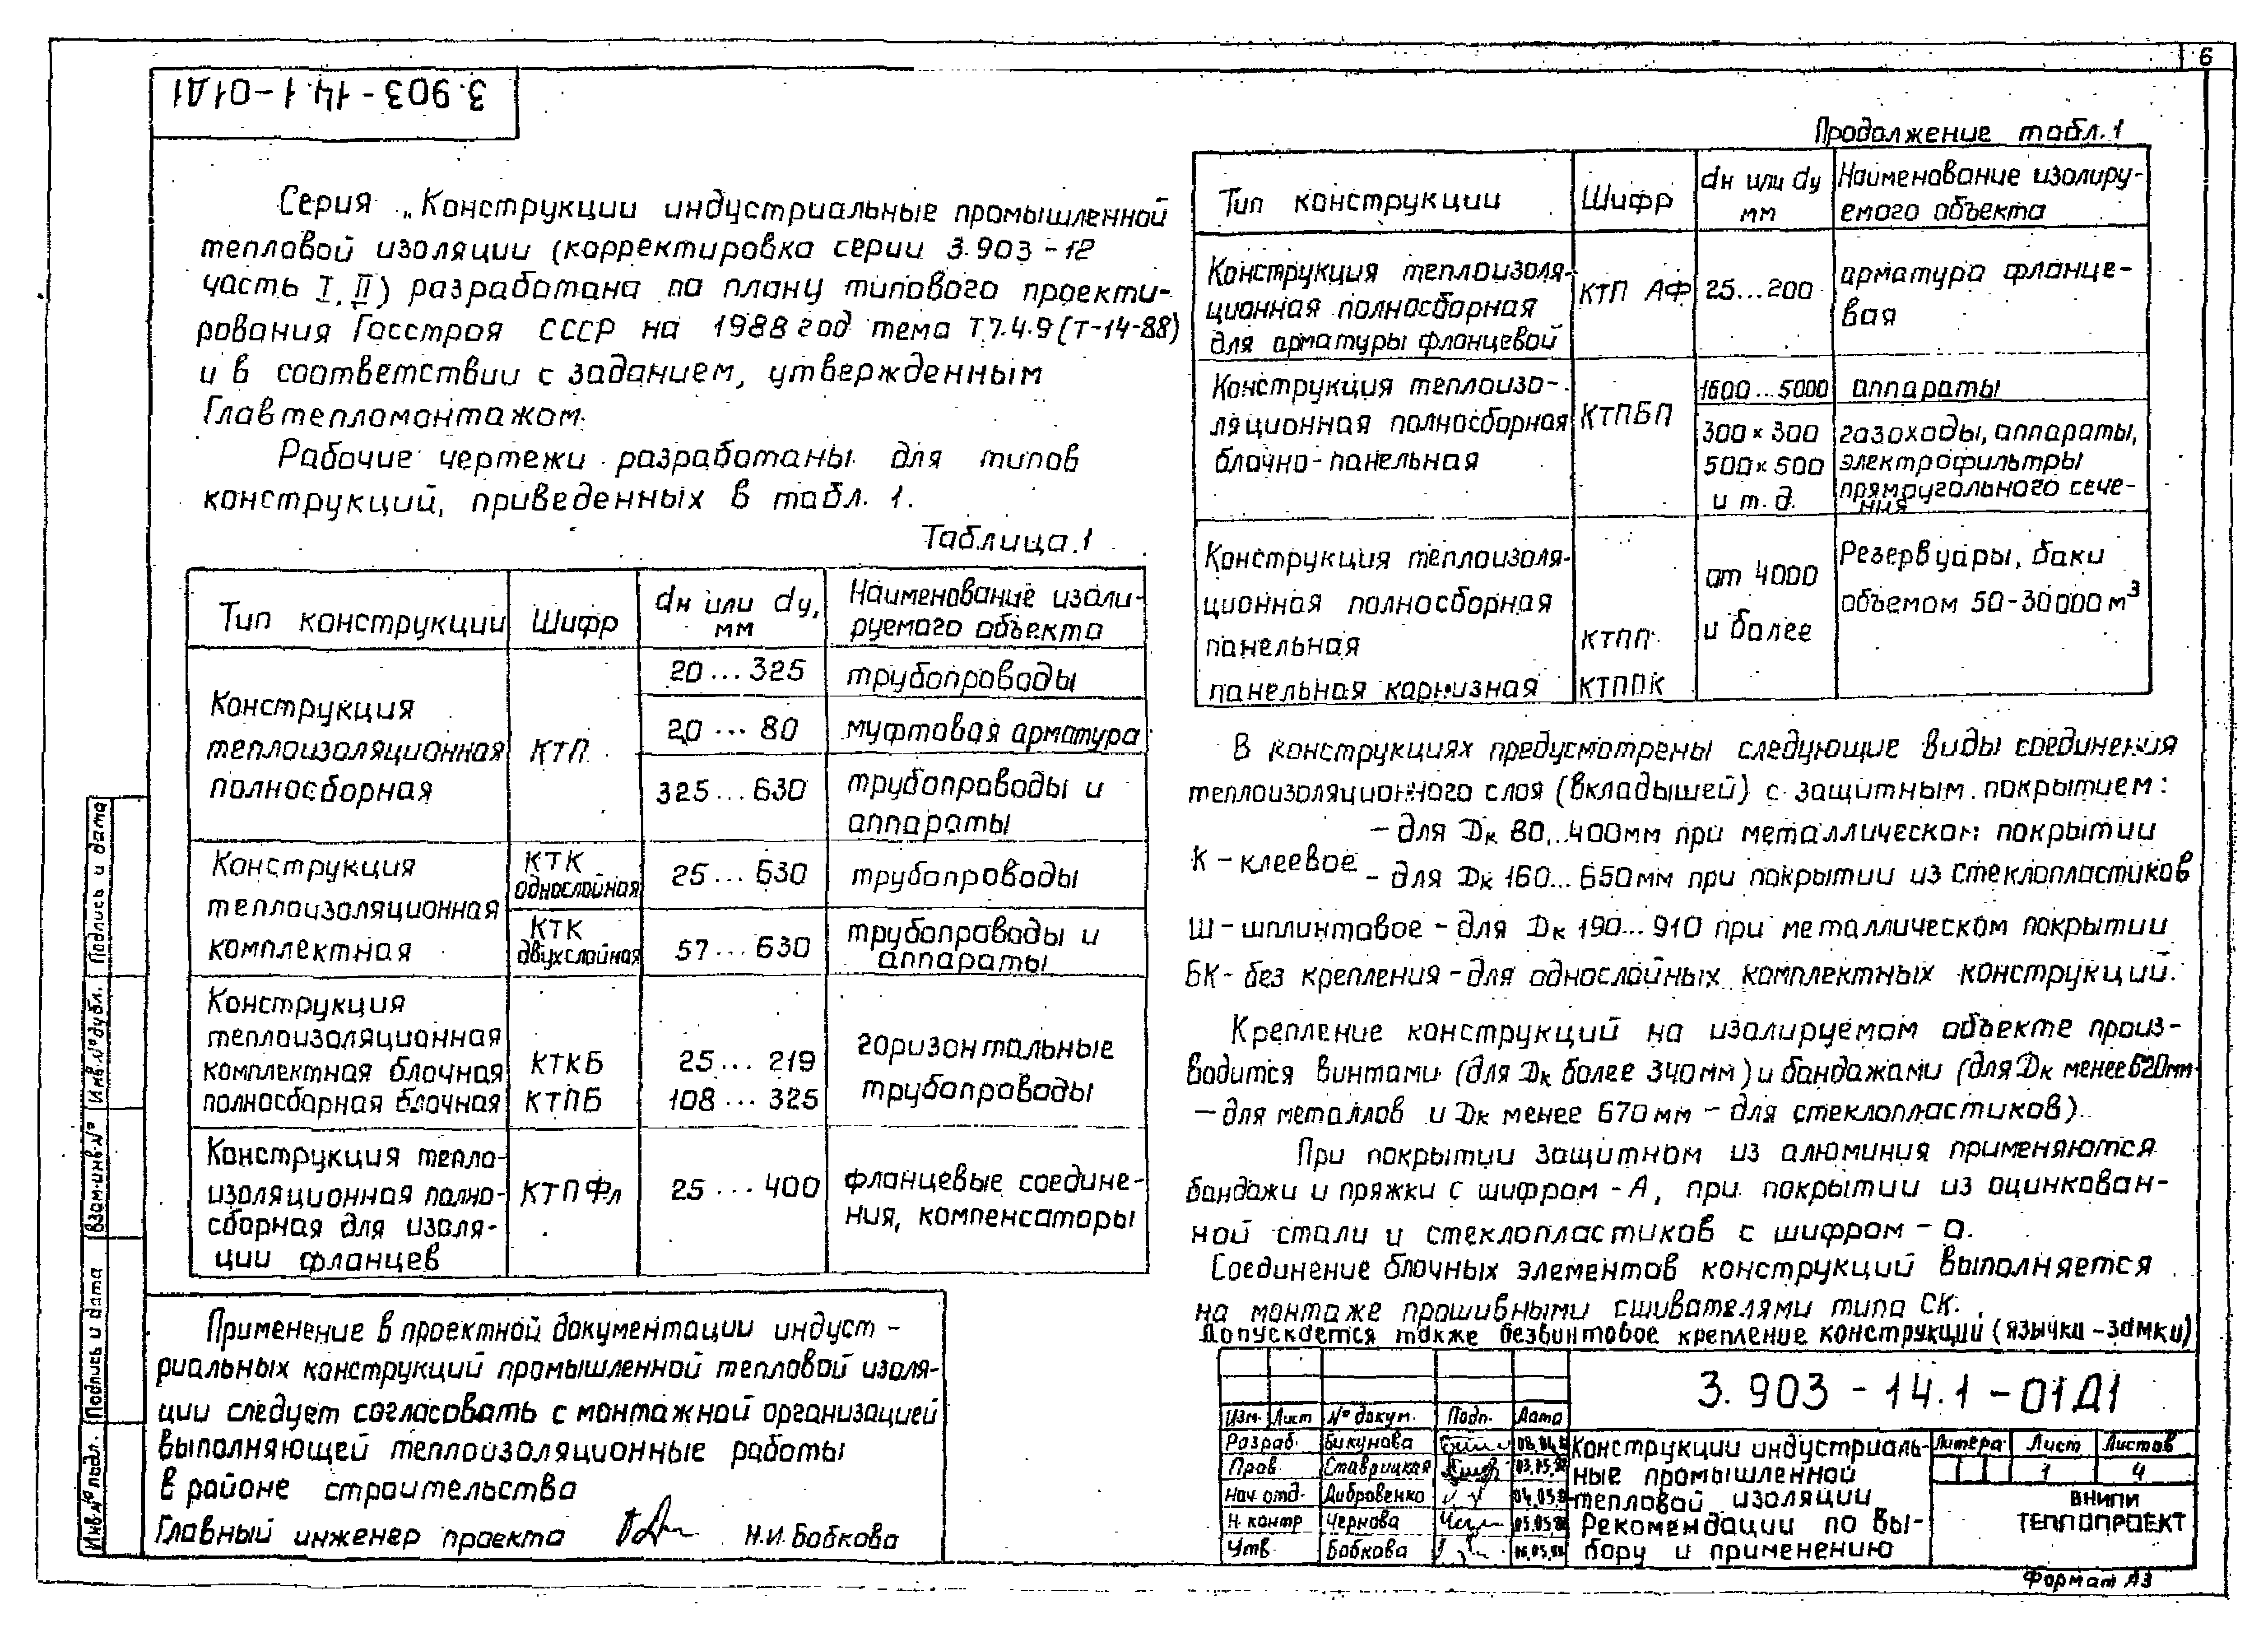 6
3.903-14.1-01Д1
Серия „Конструкции индустриальные промышленной
тепловой изоляции (корректировка серии 3.903-12
часть I, II) разработана по плану типового проекти-
рования Госстроя СССР на 1988 год тема Т7.4.9(Т-14-88)
и в соответствии с заданием, утвержденным
Главтепломонтажом.
Рабочие чертежи разработаны для типов
конструкций, приведенных в табл. 1.
Таблица 1
Тип конструкции Шифр dн или dу, мм Наименование изоли-
руемого объекта
Конструкция
теплоизоляционная
полносборная
КТП
20...325 трубопроводы
20...80 муфтовая арматура
325...630 трубопроводы и
аппараты
Конструкция
теплоизоляционная
комплектная
КТК
однослойная
25...630 трубопроводы
КТК
двухслойная
57...630 трубопроводы и
аппараты
Конструкция
теплоизоляционная
комплектная блочная КТКБ 25...219
полносборная блочная КТПБ 108...325
горизонтальные
трубопроводы
Конструкция тепло-
изоляционная полно-
сборная для изоля-
ции фланцев
КТПФл 25...400 фланцевые соедине-
ния, компенсаторы
Применение в проектной документации индуст-
риальных конструкций промышленной тепловой изоля-
ции следует согласовать с монтажной организацией
выполняющей теплоизоляционные работы
в районе строительства
Главный инженер проекта Н.И. Бобкова
Продолжение табл. 1
Тип конструкции Шифр dн или dу мм Наименование изолиру-
емого объекта
Конструкция теплоизоля-
ционная полносборная
для арматуры фланцевой
КТП АФ 25...200 арматура фланце-
вая
Конструкция теплоизо-
ляционная полносборная
блочно-панельная
КТПБП
1600...5000 аппараты
300×300
500×500
и т.д.
газоходы, аппараты,
электрофильтры
прямоугольного сече-
ния
Конструкция теплоизоля-
ционная полносборная
панельная КТПП
панельная карнизная КТППК
от 4000
и более
Резервуары, баки
объемом 50-30000 м³
В конструкциях предусмотрены следующие виды соединения
теплоизоляционного слоя (вкладышей) с защитным покрытием:
К - клеевое
- для Дк 80...400мм при металлическом покрытии
- для Дк 160...650мм при покрытии из стеклопластиков
Ш - шплинтовое - для Дк 190...910 при металлическом покрытии
БК - без крепления - для однослойных комплектных конструкций.
Крепление конструкций на изолируемом объекте произ-
водится винтами (для Дк более 340мм) и бандажами (для Дк менее 620мм
- для металлов и Дк менее 670мм - для стеклопластиков).
При покрытии защитном из алюминия применяются
бандажи и пряжки с шифром - А, при покрытии из оцинкован-
ной стали и стеклопластиков с шифром - О.
Соединение блочных элементов конструкций выполняется
на монтаже прошивными сшивателями типа СК.
Допускается также безвинтовое крепление конструкции (язычки-замки)
3.903-14.1-01Д1
Изм. Лист № докум. Подп. Дата
Разраб. Бикунова
Пров Ставрицкая
Нач. отд. Дибровенко
Н. контр Чернова
Утв. Бобкова
Конструкции индустриаль-
ные промышленной
тепловой изоляции
Рекомендации по вы-
бору и применению
Литера Лист Листов
1 4
ВНИПИ
ТЕПЛОПРОЕКТ
Формат А3
Инв. № подл. Подпись и дата Взам. инв. № Инв. № дубл. Подпись и дата